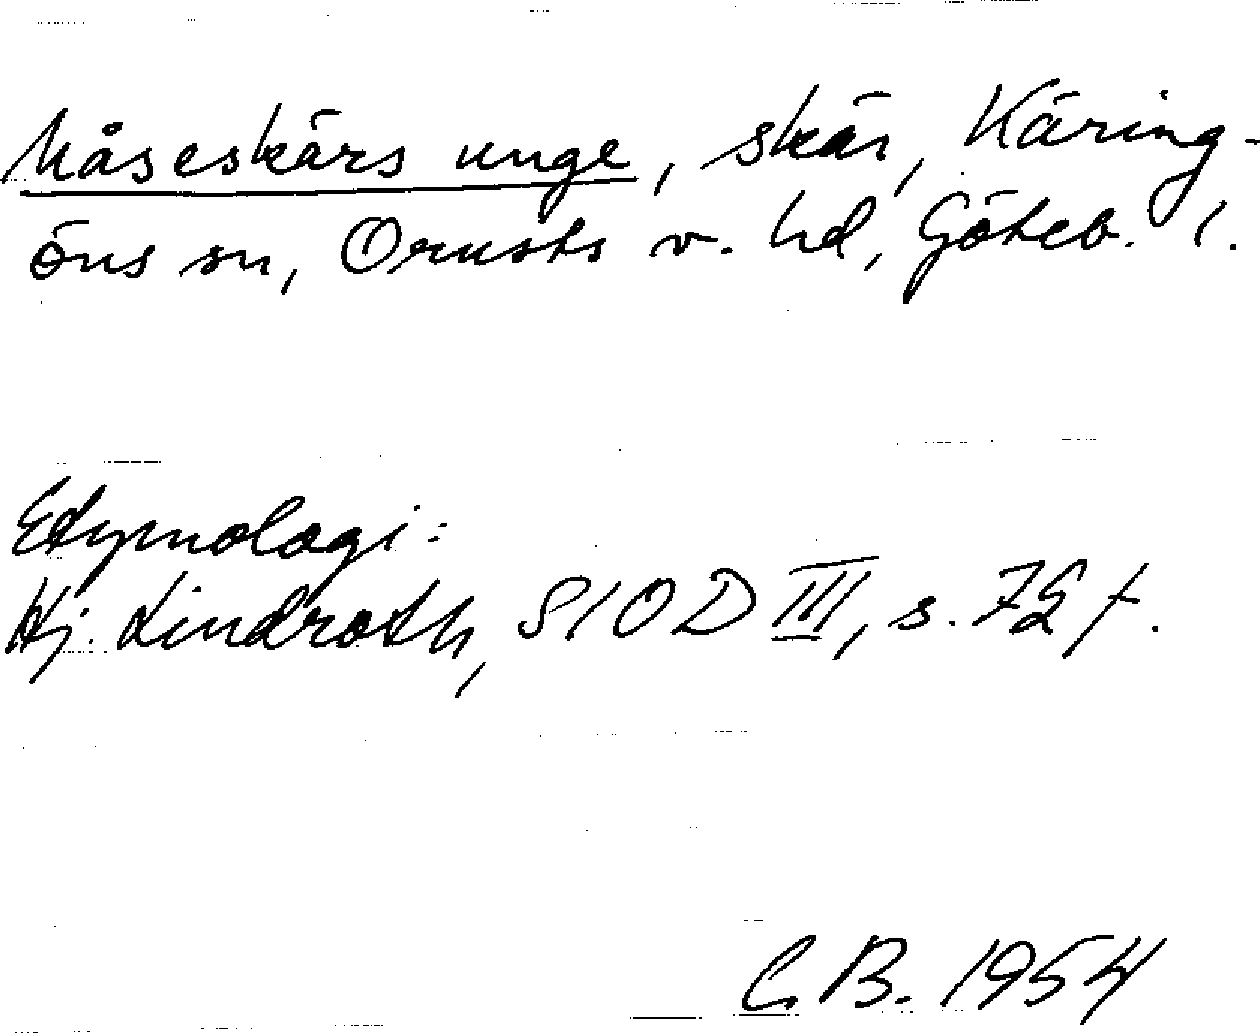 Måseskärs unge, skär, Käring-
öns sn, Orusts v. hd, Göteb. l.
Etymologi:
Hj. Lindroth, SIOD III, s. 72 f.
C B. 1954